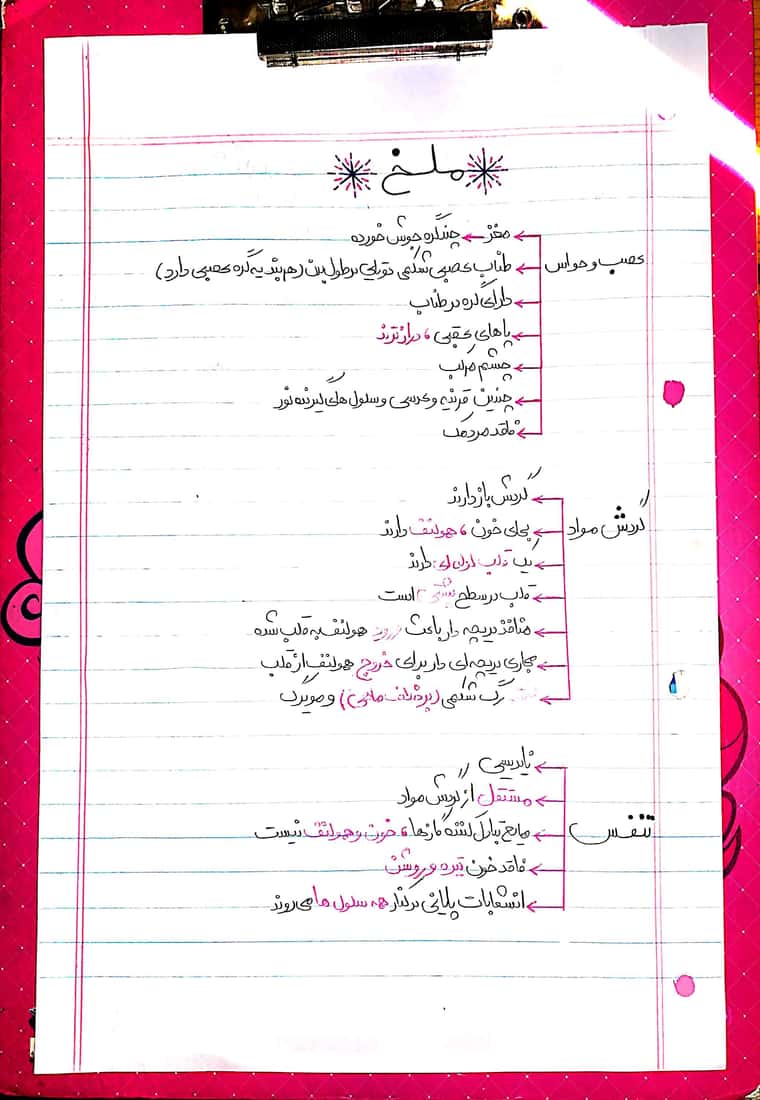 ملخ
عصب و حواس
مغز ← چند گره جوش خورده
طناب عصبی شکمی در طول بدن (هر بند یه گره عصبی دارد)
دارای گره در طناب
پاهای عقبی، درازترند
چشم مرکب
چندین قرنیه و عدسی و سلول های گیرنده نور
فاقد مردمک
گردش مواد
گردش باز دارند
بجای خون، همولنف دارند
یک قلب لوله ای دارند
قلب در سطح پشتی است
منافذ دریچه دار باعث ورود همولنف به قلب شده
مجاری دریچه ای دار برای خروج همولنف از قلب
فاقد رگ شکمی و مویرگ
تنفس
نایدیسی
مستقل از گردش مواد
مایع تبادل کننده گازها، خون و همولنف نیست
فاقد خون تیره و روشن
انشعابات پایانی در کنار همه سلول ها می روند